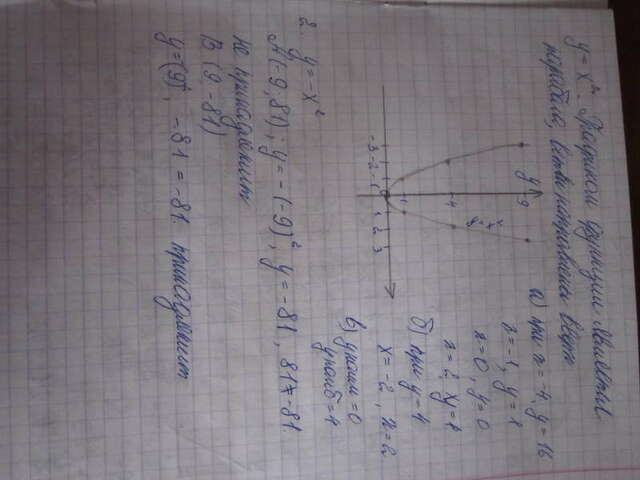 y = x². Графиком функции является
парабола, ветви направлены вверх
y
9
4
1
-3 -2 -1
1 2 3
y=x²
а) при x=-4, y=16
x=-1, y=1
x=0, y=0
x=2, y=4
б) при y=4
x=-2, x=2
в) y наим =0
y наиб =4
2. y=-x²
А(-9;81); y=-(-9)², y=-81, 81≠-81
не принадлежит
В(9;-81)
y=-(9)², -81=-81 принадлежит